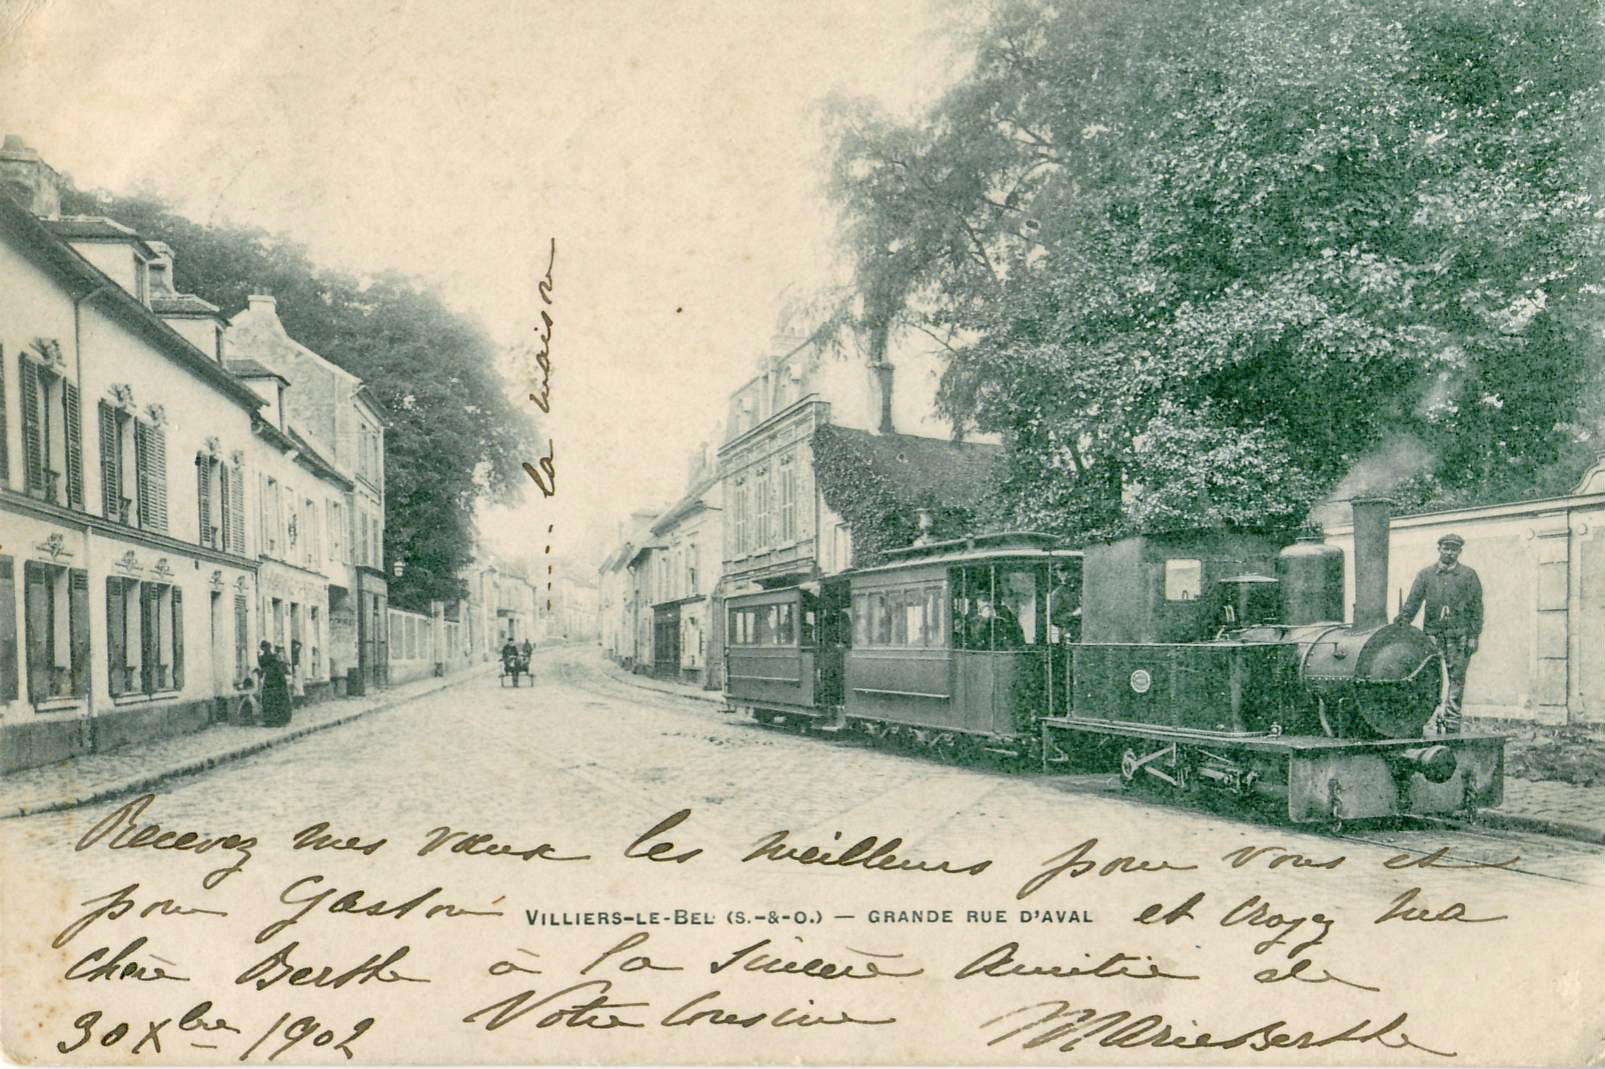 la maison
Recevez mes vœux les meilleurs pour vous et
pour Gaston VILLIERS-LE-BEL (S.-&-O.) — GRANDE RUE D'AVAL et croyez ma
chère Berthe à la sincère Amitié de
30 Xbre 1902 Votre Cousine Marie Berthe